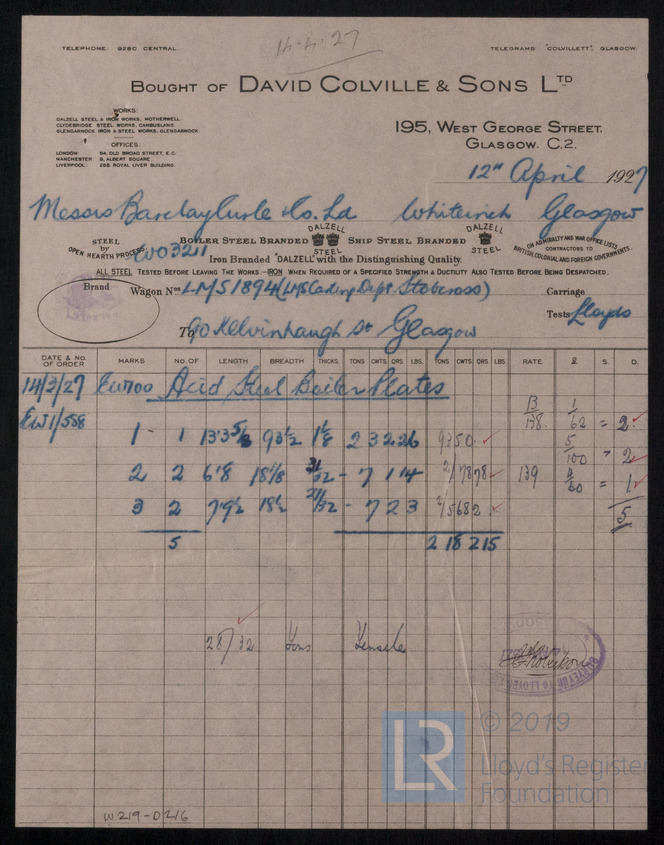 14-4-27
TELEPHONE: 9260 CENTRAL.
TELEGRAMS "COLVILLETT", GLASGOW.
BOUGHT OF DAVID COLVILLE & SONS LTD
WORKS:
DALZELL STEEL & IRON WORKS, MOTHERWELL.
CLYDEBRIDGE STEEL WORKS, CAMBUSLANG.
GLENGARNOCK IRON & STEEL WORKS, GLENGARNOCK.
OFFICES:
LONDON: 94, OLD BROAD STREET, E.C.
MANCHESTER: 9, ALBERT SQUARE.
LIVERPOOL: 268, ROYAL LIVER BUILDING.
195, WEST GEORGE STREET.
GLASGOW. C.2.
12th April 1927
Messrs Barclay Curle & Co. Ld Whiteinch Glasgow
STEEL BY OPEN HEARTH PROCESS
BOILER STEEL BRANDED DALZELL STEEL SHIP STEEL BRANDED DALZELL STEEL
ON ADMIRALTY AND WAR OFFICE LISTS CONTRACTORS TO BRITISH, COLONIAL AND FOREIGN GOVERNMENTS.
Iron Branded "DALZELL" with the Distinguishing Quality.
ALL STEEL TESTED BEFORE LEAVING THE WORKS.—IRON WHEN REQUIRED OF A SPECIFIED STRENGTH & DUCTILITY ALSO TESTED BEFORE BEING DESPATCHED.
Brand
Wagon Nos LMS 1894 (LMS Carting Dept Stobcross)
Carriage
Tests Lloyds
To 90 Kelvinhaugh St Glasgow
DATE & NO. OF ORDER MARKS NO. OF LENGTH BREADTH THICKS. TONS CWTS. QRS. LBS. TONS CWTS. QRS LBS RATE £ S. D.
14/3/27 Acid Steel Boiler Plates
EW1/558
13/138 1/62 = 2
1 1 13'3 5/8 93 1/2 1 1/8 2 3 2 26 9350
5/100 " 2
2 2 6'8 18 1/8 21/32 - 7 1 14 139 = 1
3 2 7'9 1/2 18 1/2 21/32 - 7 2 3 2/5682
5
5 2 18 2 15
28/32 Tons Tensile
W219-0216
LR
© 2019
Lloyd's Register
Foundation